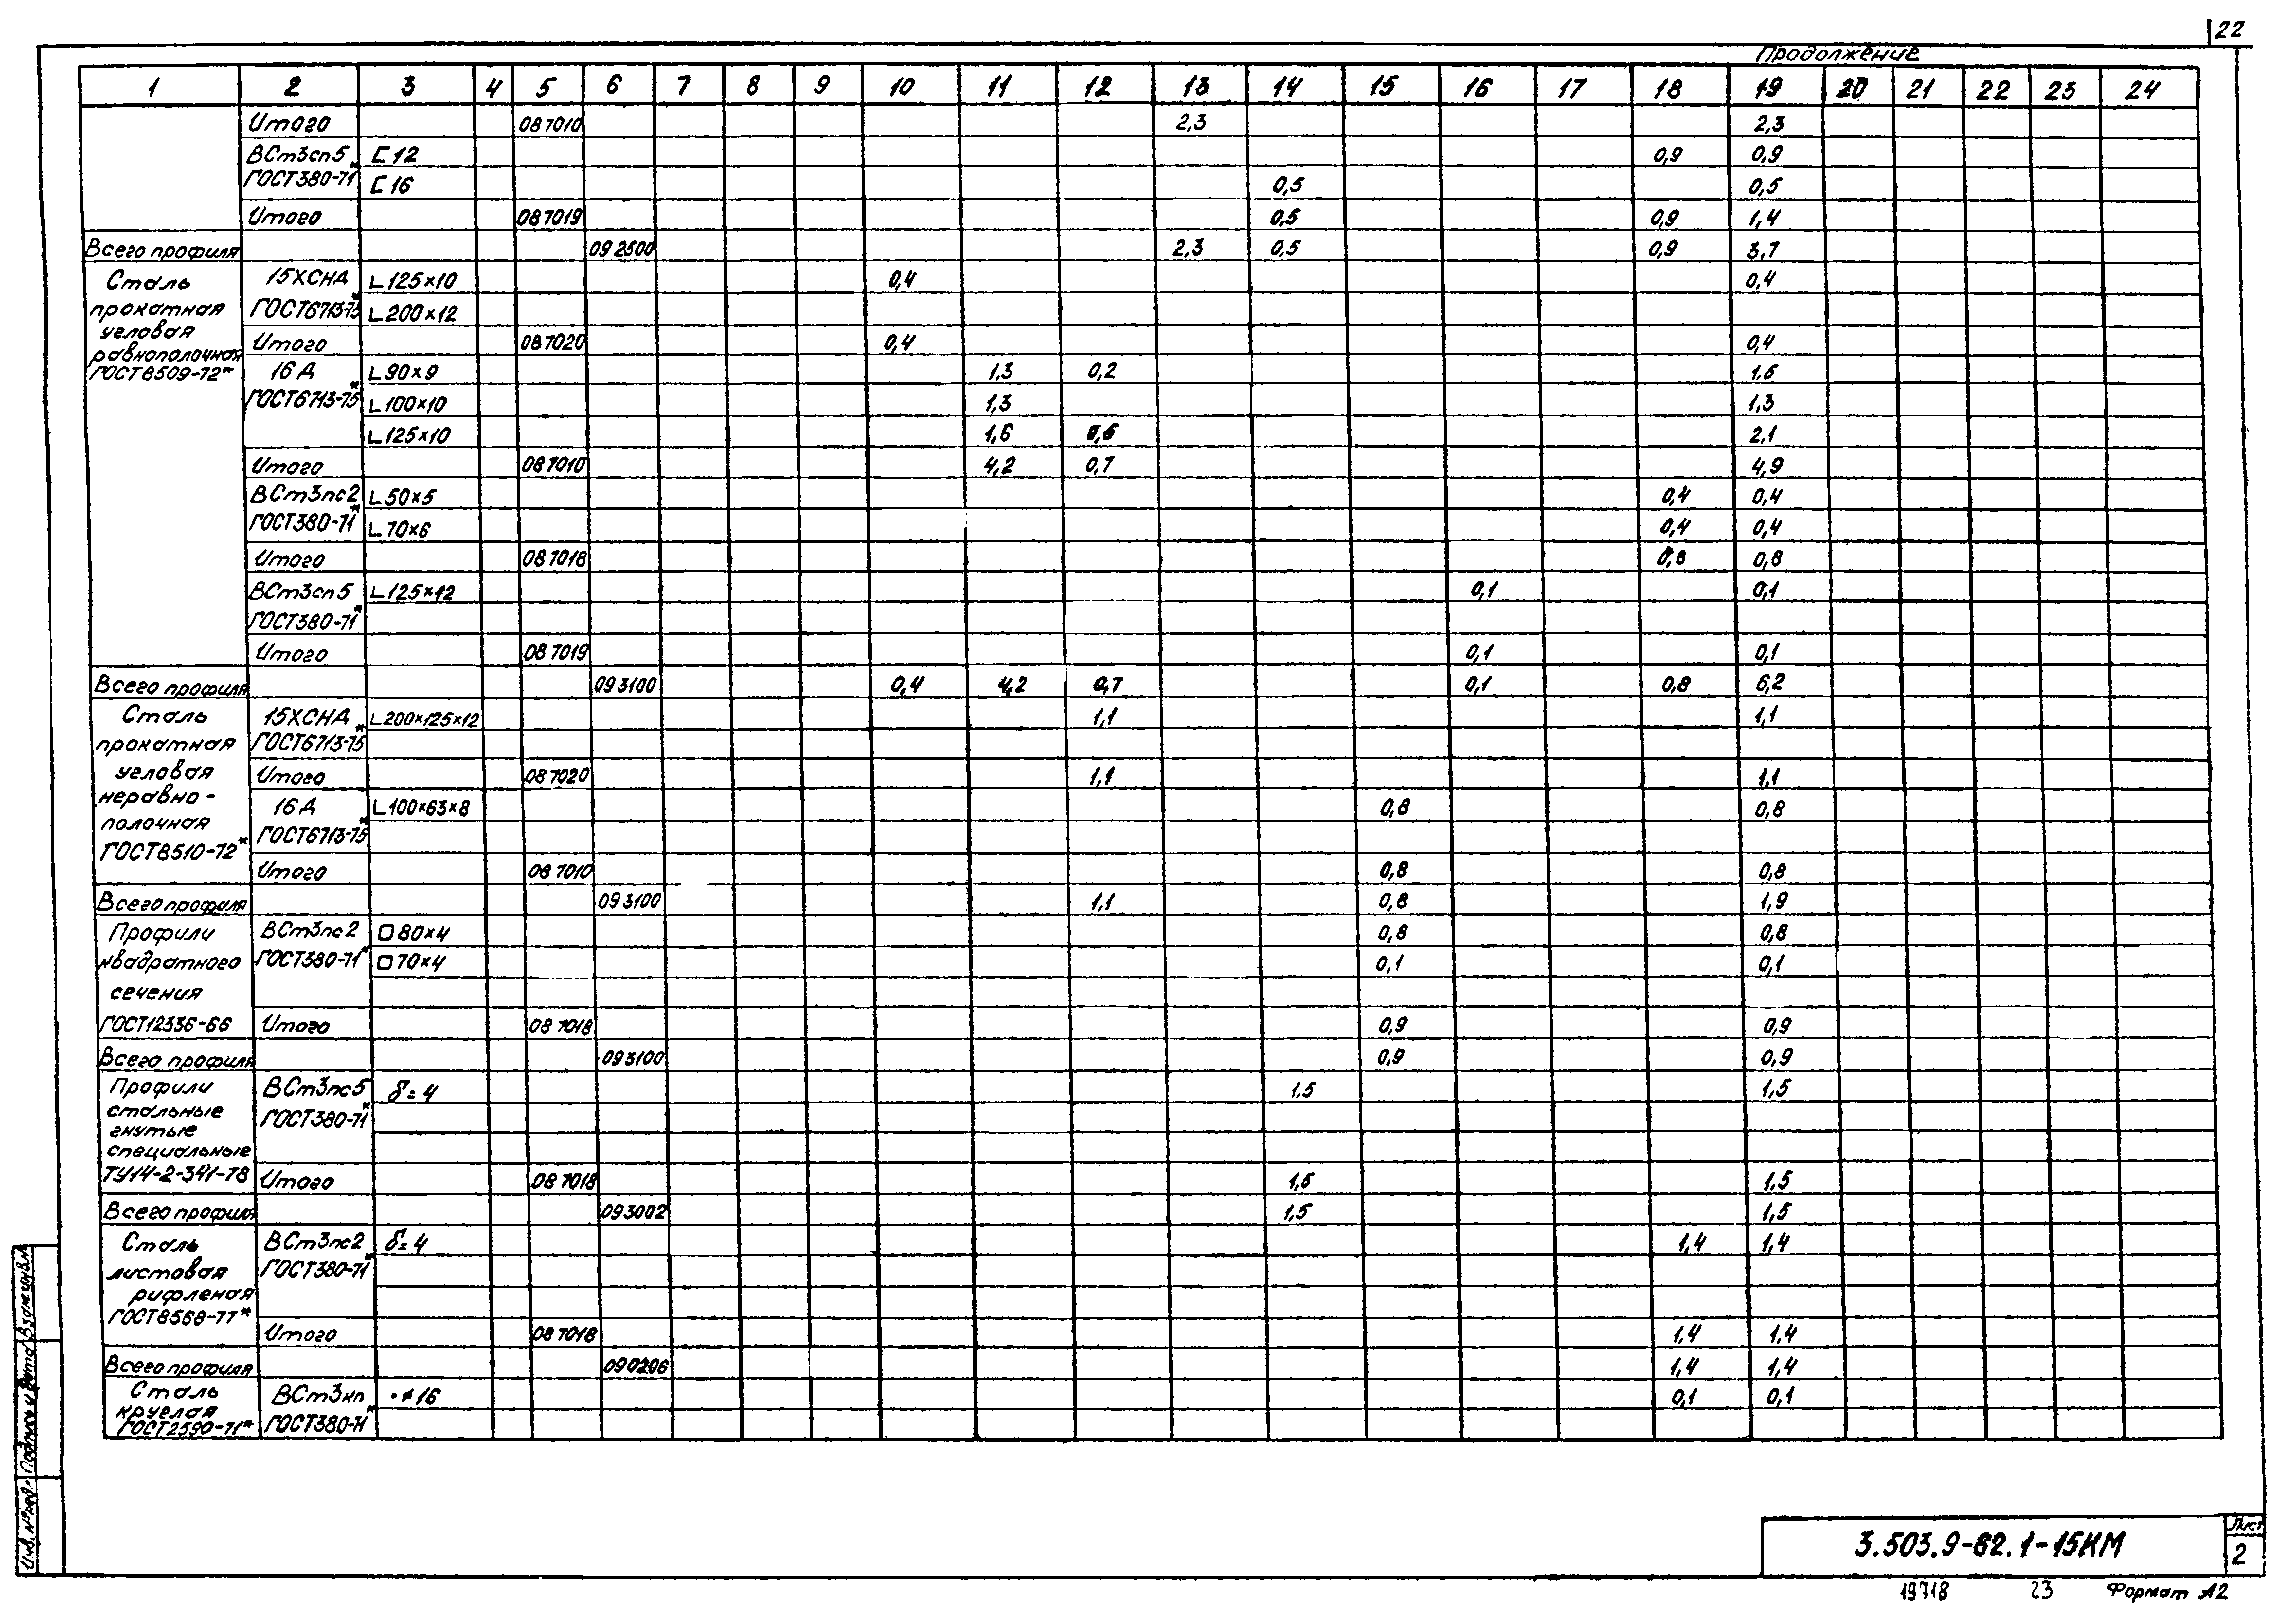 22
Продолжение
1 2 3 4 5 6 7 8 9 10 11 12 13 14 15 16 17 18 19 20 21 22 23 24
Итого 087010 2,3 2,3
ВСт3сп5 [12 0,9 0,9
ГОСТ380-71* [16 0,5 0,5
Итого 087019 0,5 0,9 1,4
Всего профиля 092500 2,3 0,5 0,9 3,7
Сталь 15ХСНД L125×10 0,4 0,4
прокатная ГОСТ6713-75* L200×12
угловая
равнополочная Итого 087020 0,4 0,4
ГОСТ8509-72* 16Д L90×9 1,3 0,2 1,5
ГОСТ6713-75* L100×10 1,3 1,3
L125×10 1,6 0,5 2,1
Итого 087010 4,2 0,7 4,9
ВСт3пс2 L50×5 0,4 0,4
ГОСТ380-71* L70×6 0,4 0,4
Итого 087018 0,8 0,8
ВСт3сп5 L125×12 0,1 0,1
ГОСТ380-71*
Итого 087019 0,1 0,1
Всего профиля 093100 0,4 4,2 0,7 0,1 0,8 6,2
Сталь 15ХСНД L200×125×12 1,1 1,1
прокатная ГОСТ6713-75*
угловая Итого 087020 1,1 1,1
неравно- 16Д L100×63×8 0,8 0,8
полочная ГОСТ6713-75*
ГОСТ8510-72*
Итого 087010 0,8 0,8
Всего профиля 093100 1,1 0,8 1,9
Профили ВСт3пс2 □80×4 0,8 0,8
квадратного ГОСТ380-71* □70×4 0,1 0,1
сечения
ГОСТ12336-66 Итого 087018 0,9 0,9
Всего профиля 093100 0,9 0,9
Профили ВСт3пс5 δ=4 1,5 1,5
стальные ГОСТ380-71*
гнутые
специальные
ТУ14-2-341-78 Итого 087018 1,5 1,5
Всего профиля 093002 1,5 1,5
Сталь ВСт3пс2 δ=4 1,4 1,4
листовая ГОСТ380-71*
рифленая
ГОСТ8568-77* Итого 087018 1,4 1,4
Всего профиля 090206 1,4 1,4
Сталь ВСт3кп •ø16 0,1 0,1
круглая
ГОСТ2590-71* ГОСТ380-71*
Инв. № подл. Подпись и дата Взам.инв.N
3.503.9-62.1-15КМ
Лист
2
19718 23 Формат А2